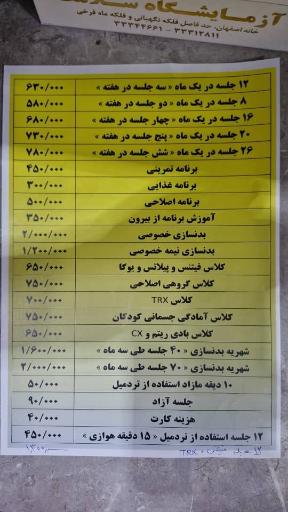 آزمایشگاه
خانه اصفهان، حد فاصل فلکه نگهبانی و فلکه ماه فرخی
۳۳۳۴۴۶۶۱ - ۳۳۳۱۲۸۱۱
۱۲ جلسه در یک ماه « سه جلسه در هفته » ۶۳۰/۰۰۰
۸ جلسه در یک ماه « دو جلسه در هفته » ۵۸۰/۰۰۰
۱۶ جلسه در یک ماه « چهار جلسه در هفته » ۶۸۰/۰۰۰
۲۰ جلسه در یک ماه « پنج جلسه در هفته » ۷۳۰/۰۰۰
۲۶ جلسه در یک ماه « شش جلسه در هفته » ۷۸۰/۰۰۰
برنامه تمرینی ۴۵۰/۰۰۰
برنامه غذایی ۳۰۰/۰۰۰
برنامه اصلاحی ۵۰۰/۰۰۰
آموزش برنامه از بیرون ۳۵۰/۰۰۰
بدنسازی خصوصی ۲/۰۰۰/۰۰۰
بدنسازی نیمه خصوصی ۱/۲۰۰/۰۰۰
کلاس فیتنس و پیلاتس و یوگا ۶۵۰/۰۰۰
کلاس گروهی اصلاحی ۷۵۰/۰۰۰
کلاس TRX ۷۰۰/۰۰۰
کلاس آمادگی جسمانی کودکان ۷۵۰/۰۰۰
کلاس بادی ریتم و CX ۶۵۰/۰۰۰
شهریه بدنسازی « ۴۰ جلسه طی سه ماه » ۱/۶۰۰/۰۰۰
شهریه بدنسازی « ۷۰ جلسه طی سه ماه » ۲/۰۰۰/۰۰۰
۱۰ دیقه مازاد استفاده از تردمیل ۵۰/۰۰۰
جلسه آزاد ۹۰/۰۰۰
هزینه کارت ۴۰/۰۰۰
۱۲ جلسه استفاده از تردمیل « ۱۵ دقیقه هوازی » ۴۵۰/۰۰۰
TRX